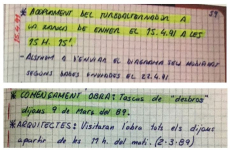 * ACOPLAMENT DEL TURBOALTERNADOR A
LA XARXA DE ENHER EL 15.4.91 A LES
15 H. 15'.
- ADJUNTEM A L'ENVIAR EL DIAGRAMA
SEGONS DADES ENVIADES EL 22.4.91
* COMENÇAMENT OBRA: Tascas de "desbros"
dijous 9 de Març del 89.
* ARQUITECTES: Visitaran l'obra tots els dijous
apartir de les 11 h. del matí. (2-3-89)